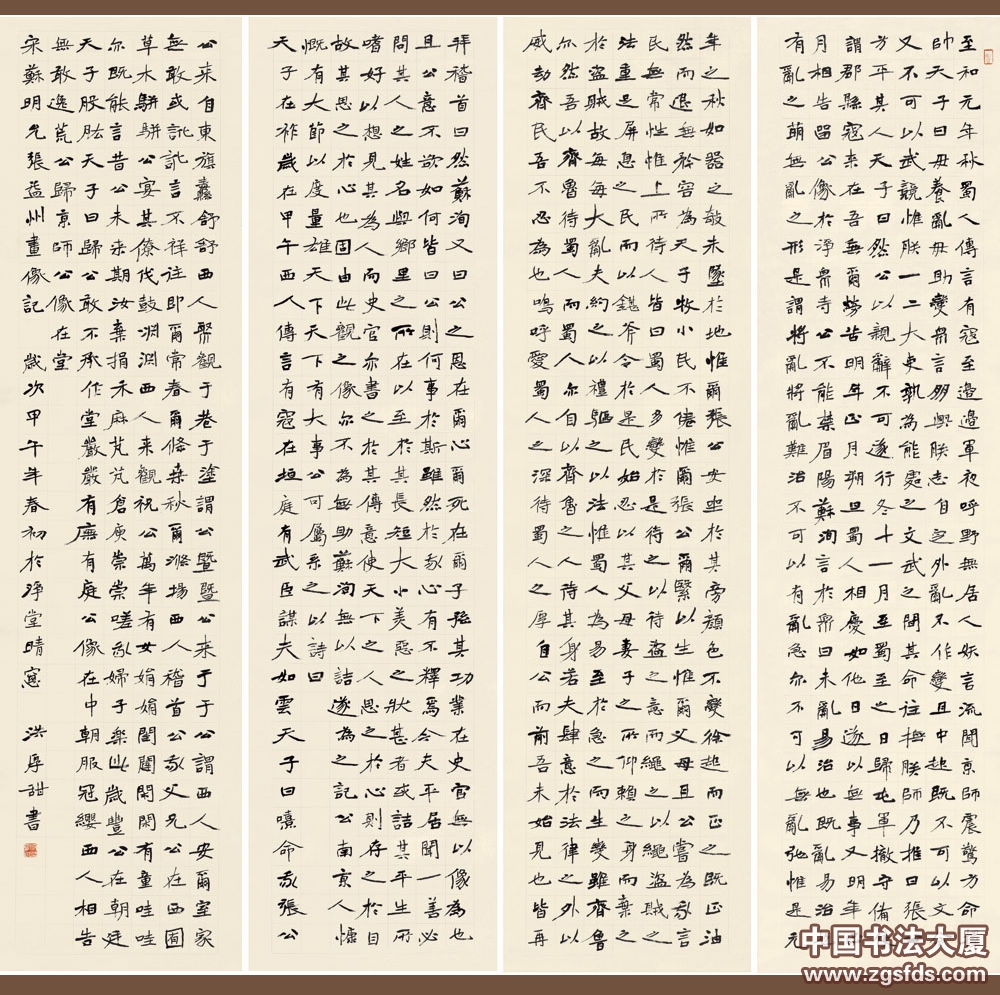 至和元年秋蜀人傳言有寇至邊邊軍夜呼野無居人妖言流聞京師震驚方命
帥天子曰毋養亂毋助變眾言朋興朕志自定外亂不作變且中起既不可以文
又不可以武競惟朕一二大吏孰為能處之文武之間其命往撫朕師乃推曰張
方平其人天子曰然公以親辭不可遂行冬十一月至蜀至之日歸屯軍撤守備
謂郡縣寇來在吾無爾勞苦明年正月朔旦蜀人相慶如他日遂以無事又明年
月相告留公像於淨眾寺公不能禁眉陽蘇洵言於眾曰未亂易治也既亂易治
有亂之萌無亂之形是謂將亂將亂難治不可以有亂急亦不可以無亂弛惟是元
年之秋如器之敧未墜於地惟爾張公安坐於其旁顏色不變徐起而正之既正油
然而退無矜容為天子牧小民不倦惟爾張公爾繄以生惟爾父母且公嘗為我言
民無常性惟上所待人皆曰蜀人多變於是待之以待盜之意而繩之以繩盜賊之
法重足屏息之民而以鍖斧令於是民始忍以其父母妻子之所仰賴之身而棄之
於盜賊故每每大亂夫約之以禮驅之以法惟蜀人為易至於急之而生變雖齊魯
亦然吾以齊魯待蜀人而蜀人亦自以齊魯之人待其身若夫肆意於法律之外以
威劫齊民吾不忍為也嗚呼愛蜀人之深待蜀人之厚自公而前吾未始見也皆再
拜稽首曰然蘇洵又曰公之恩在爾心爾死在爾子孫其功業在史官無以像為也
且公意不欲如何皆曰公則何事於斯雖然於我心有不釋焉今夫平居聞一善必
問其人之姓名與鄉里之所在以至於其長短大小美惡之狀甚者或詰其平生所
嗜好以想見其為人而史官亦書之於其傳意使天下之人思之於心則存之於目
故其思之於心也固由此觀之像亦不為無助蘇洵無以詰遂為之記公南京人慷
慨有大節以度量雄天下天下有大事公可屬系之以詩曰
天子在祚歲在甲午西人傳言有寇在垣庭有武臣謀夫如雲天子曰嘻命我張公
公來自東旗纛舒舒西人聚觀于巷于塗謂公暨暨公來于于公謂西人安爾室家
無敢或訛訛言不祥往即爾常春爾條桑秋爾滌場西人稽首公我父兄公在西囿
草木駢駢公宴其僚伐鼓淵淵西人來觀祝公萬年有女娟娟閨闥閑閑有童哇哇
亦既能言昔公未來期汝棄捐禾麻芃芃倉庾崇崇嗟我婦子樂此歲豐公在朝廷
天子股肱天子曰歸公敢不承作堂嚴嚴有廡有庭公像在中朝服冠纓西人相告
無敢逸荒公歸京師公像在堂
宋蘇明允張益州畫像記 歲次甲午年春初於淨堂晴窓 洪厚甜書
中国书法大厦
www.zgsfds.com